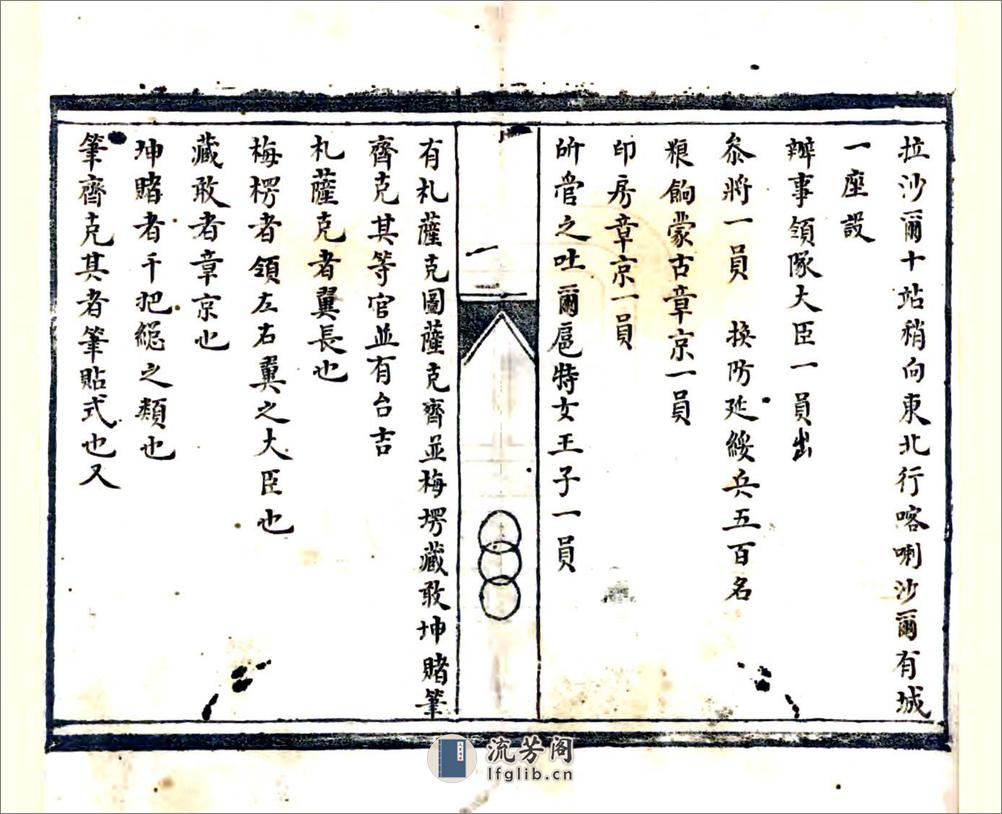 拉沙爾十站稍向東北行喀喇沙爾有城
一座設
辦事領隊大臣一員出
叅將一員 換防延綏兵五百名
粮餉蒙古章京一員
印房章京一員
所管之吐爾扈特女王子一員
一
有札薩克圖薩克齊並梅塄藏敢坤賭筆
齊克其等官並有台吉
札薩克者翼長也
梅楞者領左右翼之大臣也
藏敢者章京也
坤賭者千把緫之類也
筆齊克其者筆貼式也又
流芳阁
lfglib.cn